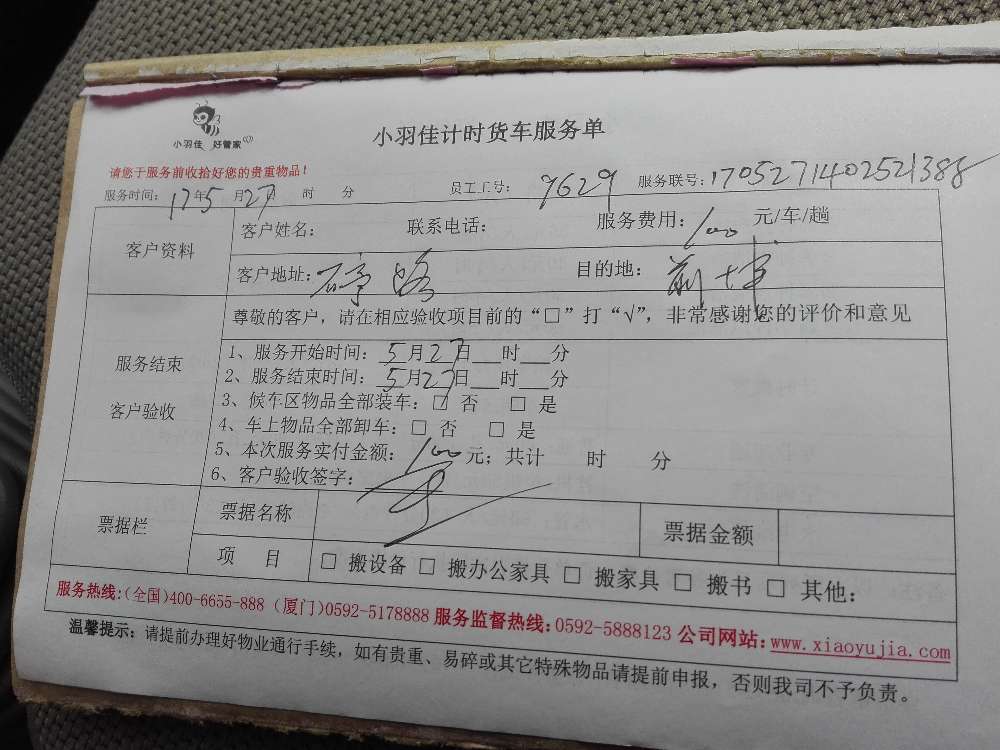 小羽佳 好管家
小羽佳计时货车服务单
请您于服务前收拾好您的贵重物品!
服务时间: 17年5月27日 时 分 员工工号: 9629 服务联号: 1705271402521388
客户资料
客户姓名: 联系电话: 服务费用: 100 元/车/趟
客户地址: 路 目的地: 前埔
服务结束
客户验收
尊敬的客户，请在相应验收项目前的“□”打“√”，非常感谢您的评价和意见
1、服务开始时间: 5月27日__时__分
2、服务结束时间: 5月27日__时__分
3、候车区物品全部装车: □ 否 □ 是
4、车上物品全部卸车: □ 否 □ 是
5、本次服务实付金额: 100元; 共计 时 分
6、客户验收签字:
票据栏
票据名称 票据金额
项 目 □ 搬设备 □ 搬办公家具 □ 搬家具 □ 搬书 □ 其他:
服务热线:(全国)400-6655-888 (厦门)0592-5178888 服务监督热线:0592-5888123 公司网站:www.xiaoyujia.com
温馨提示: 请提前办理好物业通行手续，如有贵重、易碎或其它特殊物品请提前申报，否则我司不予负责。